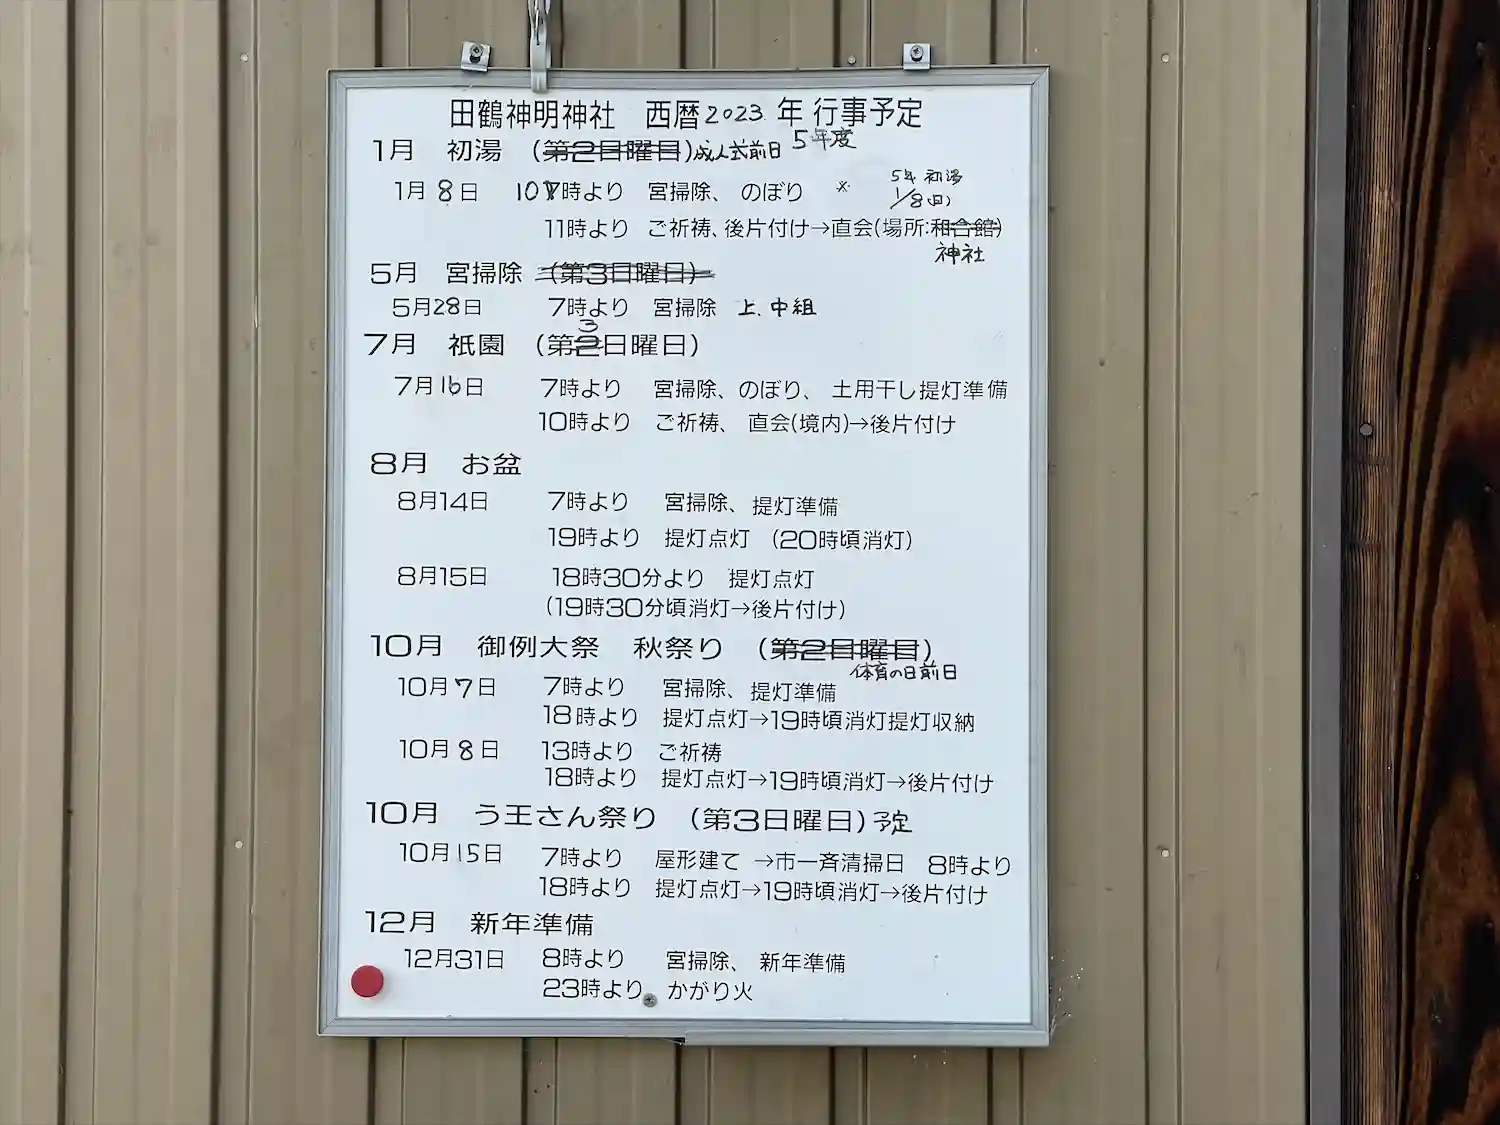 田鶴神明神社 西暦2023年 行事予定
5年度
1月 初湯 (第2日曜日)成人式前日
1月8日 10時より 宮掃除、のぼり ※ 5年 初湯
1/8(日)
11時より ご祈祷、後片付け→直会(場所:和合館)
神社
5月 宮掃除 (第3日曜日)
5月28日 7時より 宮掃除 上、中組
3
7月 祇園 (第2日曜日)
7月16日 7時より 宮掃除、のぼり、土用干し提灯準備
10時より ご祈祷、直会(境内)→後片付け
8月 お盆
8月14日 7時より 宮掃除、提灯準備
19時より 提灯点灯 (20時頃消灯)
8月15日 18時30分より 提灯点灯
(19時30分頃消灯→後片付け)
10月 御例大祭 秋祭り (第2日曜日)
体育の日前日
10月7日 7時より 宮掃除、提灯準備
18時より 提灯点灯→19時頃消灯提灯収納
10月8日 13時より ご祈祷
18時より 提灯点灯→19時頃消灯→後片付け
10月 う王さん祭り (第3日曜日)予定
10月15日 7時より 屋形建て →市一斉清掃日 8時より
18時より 提灯点灯→19時頃消灯→後片付け
12月 新年準備
12月31日 8時より 宮掃除、新年準備
23時より かがり火